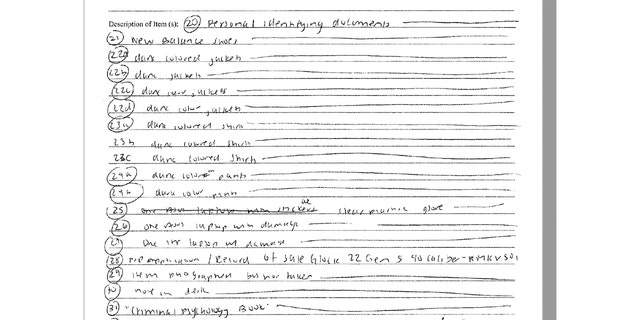 Description of Item(s): 20 Personal identifying documents
21 New Balance shoes
22a dark colored jacket
22b dark jacket
22c dark color jackets
22d dark color jacket
23a dark colored shirt
23b dark colored shirt
23c dark colored shirt
24a dark color pants
24b dark color pants
25 one ASUS laptop glove
26 one ASUS laptop with damage
27 one laptop w/ damage
28 application / Record of Sale Glock 22 Gen 5 40 caliber -
29 item photographed but not taken
30 note in desk
31 "Criminal Psychology Book"